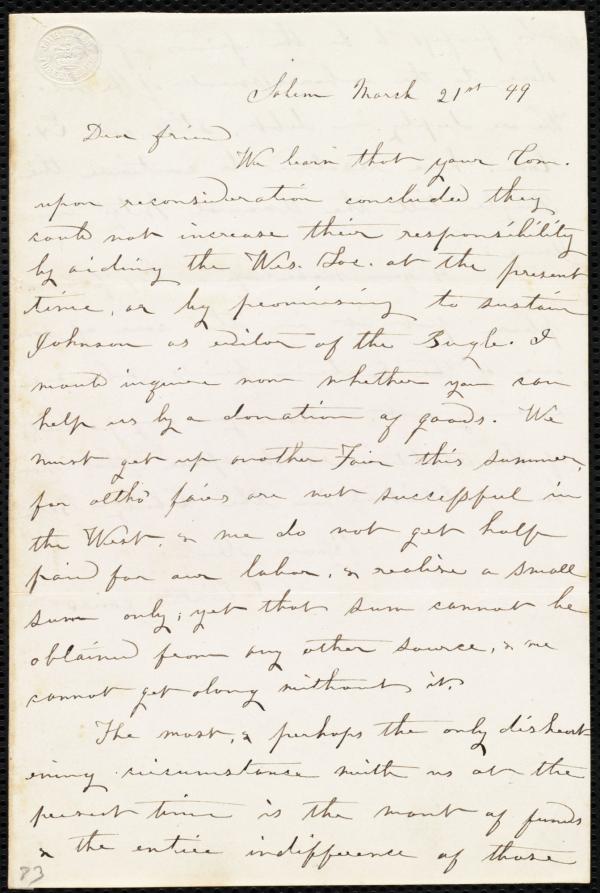 Salem March 21st 49
Dear friend
We learn that your Com.
upon reconsideration concluded they
could not increase their responsibility
by aiding the Wes. Soc. at the present
time, or by promising to sustain
Johnson as editor of the Bugle. I
would inquire now whether you can
help us by a donation of goods. We
must get up another Fair this summer,
for altho' fairs are not successful in
the West, & we do not get half
paid for our labor, & realize a small
sum only, yet that sum cannot be
obtained from any other source, & we
cannot get along without it.
The most, & perhaps the only disheart
ening circumstance with us at the
present time is the want of funds
& the entire indifference of those
23